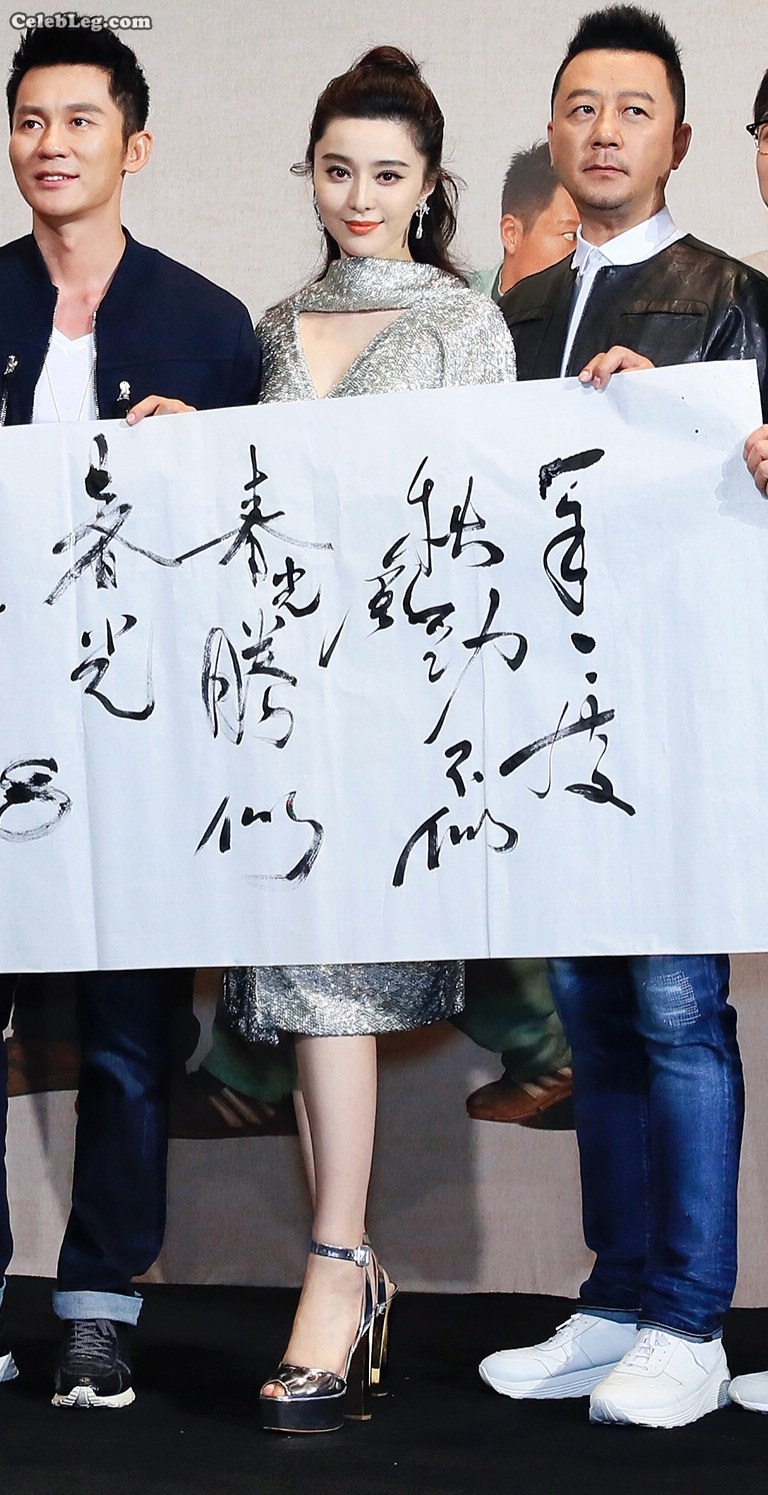 CelebLeg.com
一年一度
秋風劲不似
春光勝似
春光